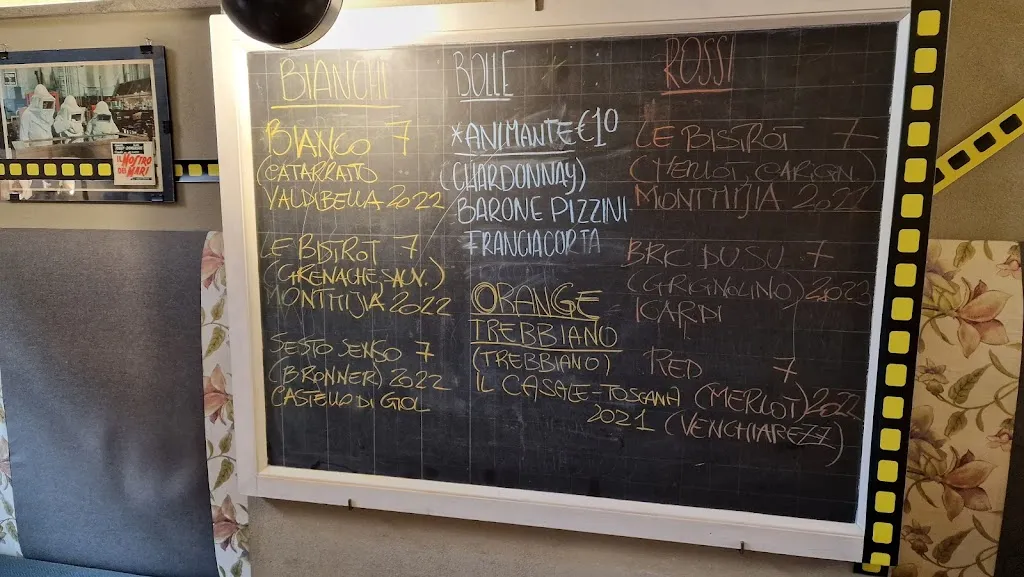 IL MOSTRO
DEI MARI
BIANCHI
BIANCO 7
(CATARRATTO
VALDIBELLA 2022
LE BISTROT 7
(GRENACHE, SAUV.)
MONTMIJA 2022
SESTO SENSO 7
(BRONNER) 2022
CASTELLO DI GIOL
BOLLE
*ANIMANTE €10
(CHARDONNAY)
BARONE PIZZINI
FRANCIACORTA
ORANGE
TREBBIANO
(TREBBIANO)
IL CASALE-TOSCANA
2021
ROSSI
LE BISTROT 7
(MERLOT, CARIGN.)
MONTMIJIA 2022
BRIC DU SU 7
(GRIGNOLINO) 2023
ICARDI
RED 7
(MERLOT) 2022
(VENCHIAREZZA)